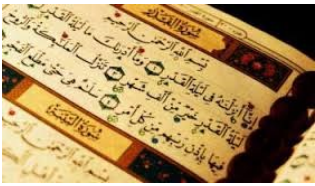 سُورَةُ الْقَدْرِ
بِسْمِ اللَّهِ الرَّحْمَٰنِ الرَّحِيمِ
إِنَّا أَنْزَلْنَاهُ فِي لَيْلَةِ الْقَدْرِ ۝ وَمَا أَدْرَاكَ مَا لَيْلَةُ الْقَدْرِ
لَيْلَةُ الْقَدْرِ خَيْرٌ مِنْ أَلْفِ شَهْرٍ ۝ تَنَزَّلُ الْمَلَائِكَةُ وَالرُّوحُ
فِيهَا بِإِذْنِ رَبِّهِمْ مِنْ كُلِّ أَمْرٍ ۝ سَلَامٌ هِيَ حَتَّىٰ مَطْلَعِ الْفَجْرِ
سُورَةُ الْبَيِّنَةِ
بِسْمِ اللَّهِ الرَّحْمَٰنِ